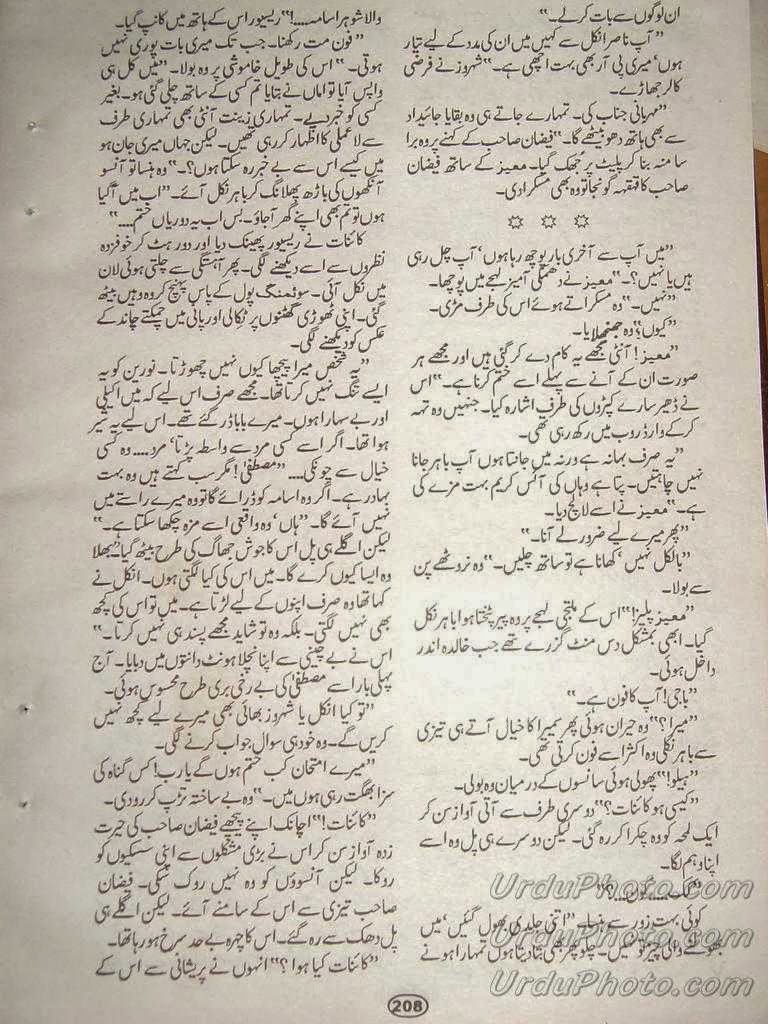 ان لوگوں سے بات کر لے۔“
”آپ ناصر انکل سے کہیں میں ان کی مدد کے لیے تیار
ہوں‘ میری پی آر بھی بہت اچھی ہے۔“ شہروز نے فرضی
کالر جھاڑے۔
”مہربانی جناب کی۔ تمہارے جاتے ہی وہ بقایا جائیداد
سے بھی ہاتھ دھو بیٹھے گا۔“ فیضان صاحب کے کہنے پر وہ برا
سا منہ بنا کر پلیٹ پر جُھک گیا۔ معیز کے ساتھ فیضان
صاحب کا قہقہہ گونجا تو وہ بھی مسکرا دی۔
☼ ☼ ☼
”میں آپ سے آخری بار پوچھ رہا ہوں‘ آپ چل رہی
ہیں یا نہیں؟“ معیز نے دھمکی آمیز لہجے میں پوچھا۔
”نہیں۔“ وہ مسکراتے ہوئے اس کی طرف مڑی۔
”کیوں؟“ وہ جھنجھلایا۔
”معیز! آنٹی مجھے یہ کام دے کر گئی ہیں اور مجھے ہر
صورت ان کے آنے سے پہلے اسے ختم کرنا ہے۔“ اس
نے ڈھیر سارے کپڑوں کی طرف اشارہ کیا۔ جنہیں وہ تہہ
کر کے وارڈ روب میں رکھ رہی تھی۔
”یہ صرف بہانہ ہے ورنہ میں جانتا ہوں آپ باہر جانا
نہیں چاہتیں۔ پتا ہے وہاں کی آئس کریم بہت مزے کی
ہے۔“ معیز نے اسے لالچ دیا۔
”پھر میرے لیے ضرور لے آنا۔“
”بالکل نہیں‘ کھانا ہے تو ساتھ چلیں۔“ وہ نروٹھے پن
سے بولا۔
”معیز پلیز!“ اس کے ملتجی لہجے پر وہ پیر پٹختا ہوا باہر نکل
گیا۔ ابھی بمشکل دس منٹ گزرے تھے جب خالدہ اندر
داخل ہوئی۔
”باجی! آپ کا فون ہے۔“
”میرا؟“ وہ حیران ہوئی پھر سمیرا کا خیال آتے ہی تیزی
سے باہر نکلی وہ اکثر اسے فون کرتی تھی۔
”ہیلو!“ پھولی ہوئی سانسوں کے درمیان وہ بولی۔
”کیسی ہو کائنات؟“ دوسری طرف سے آتی آواز سن کر
ایک لمحہ کو وہ چکرا کر رہ گئی۔ لیکن دوسرے ہی پل وہ اسے
اپنا وہم لگا۔
”کک..... کون....؟“
کوئی بہت زور سے ہنسا۔ ”اتنی جلدی بھول گئیں‘ میں
بھولنے والی چیز تو نہیں۔ چلو پھر بھی بتا دیتا ہوں تمہارا ہونے
والا شوہر اسامہ....!“ ریسیور اس کے ہاتھ میں کانپ گیا۔
”فون مت رکھنا۔ جب تک میری بات پوری نہیں
ہوتی۔“ اس کی طویل خاموشی پر وہ بولا۔ ”میں کل ہی
واپس آیا تو اماں نے بتایا تم کسی کے ساتھ چلی گئی ہو۔ بغیر
کسی کو خبر دیے۔ تمہاری زینت آنٹی بھی تمہاری طرف
سے لا علمی کا اظہار کر رہی تھیں۔ لیکن جہاں میری جان ہو
میں کیسے اس سے بے خبر رہ سکتا ہوں؟“ وہ ہنسا تو آنسو
آنکھوں کی باڑھ پھلانگ کر باہر نکل آئے۔ ”اب میں آ گیا
ہوں تو تم بھی اپنے گھر آ جاؤ۔ بس اب یہ دوریاں ختم....“
کائنات نے ریسیور پھینک دیا اور دور ہٹ کر خوفزدہ
نظروں سے اسے دیکھنے لگی۔ پھر آہستگی سے چلتی ہوئی لان
میں نکل آئی۔ سوئمنگ پول کے پاس پہنچ کر وہ وہیں بیٹھ
گئی۔ اپنی ٹھوڑی گھٹنوں پر ٹکالی اور پانی میں چمکتے چاند کے
عکس کو دیکھنے لگی۔
”یہ شخص میرا پیچھا کیوں نہیں چھوڑتا۔ نورین کو یہ
ایسے تنگ نہیں کرتا تھا۔ مجھے صرف اس لیے کہ میں اکیلی
اور بے سہارا ہوں۔ میرے بابا ڈر گئے تھے۔ اس لیے یہ شیر
ہوا تھا۔ اگر اسے کسی مرد سے واسطہ پڑتا‘ مرد.... وہ کسی
خیال سے چونکی.... ”مصطفیٰ! مگر سب کہتے ہیں وہ بہت
بہادر ہے۔ اگر وہ اسامہ کو ڈرائے گا تو وہ میرے راستے میں
نہیں آئے گا۔“ ہاں‘ وہ واقعی اسے مزہ چکھا سکتا ہے۔“
لیکن اگلے ہی پل اس کا جوش جھاگ کی طرح بیٹھ گیا۔ ”بھلا
وہ ایسا کیوں کرے گا۔ میں اس کی کیا لگتی ہوں۔ انکل نے
کہا تھا وہ صرف اپنوں کے لیے لڑتا ہے۔ میں تو اس کی کچھ
بھی نہیں لگتی۔ بلکہ وہ تو شاید مجھے پسند ہی نہیں کرتا۔“
اس نے بے چینی سے اپنا نچلا ہونٹ دانتوں میں دبایا۔ آج
پہلی بار اسے مصطفیٰ کی بے رخی بری طرح محسوس ہوئی۔
”تو کیا انکل یا شہروز بھائی بھی میرے لیے کچھ نہیں
کریں گے۔ وہ خود ہی سوال جواب کرنے لگی۔
”میرے امتحان کب ختم ہوں گے یا رب! کس گناہ کی
سزا بھگت رہی ہوں میں۔“ وہ بے ساختہ تڑپ کر رو دی۔
”کائنات!“ اچانک اپنے پیچھے فیضان صاحب کی حیرت
زدہ آواز سن کر اس نے بڑی مشکلوں سے اپنی سسکیوں کو
روکا۔ لیکن آنسوؤں کو وہ نہیں روک سکی۔ فیضان
صاحب تیزی سے اس کے سامنے آئے۔ لیکن اگلے ہی
پل دھک سے رہ گئے۔ اس کا چہرہ بے حد سرخ ہو رہا تھا۔
”کائنات کیا ہوا؟“ انہوں نے پریشانی سے اس کے
208
UrduPhoto.com
UrduPhoto.com
UrduPhoto.com